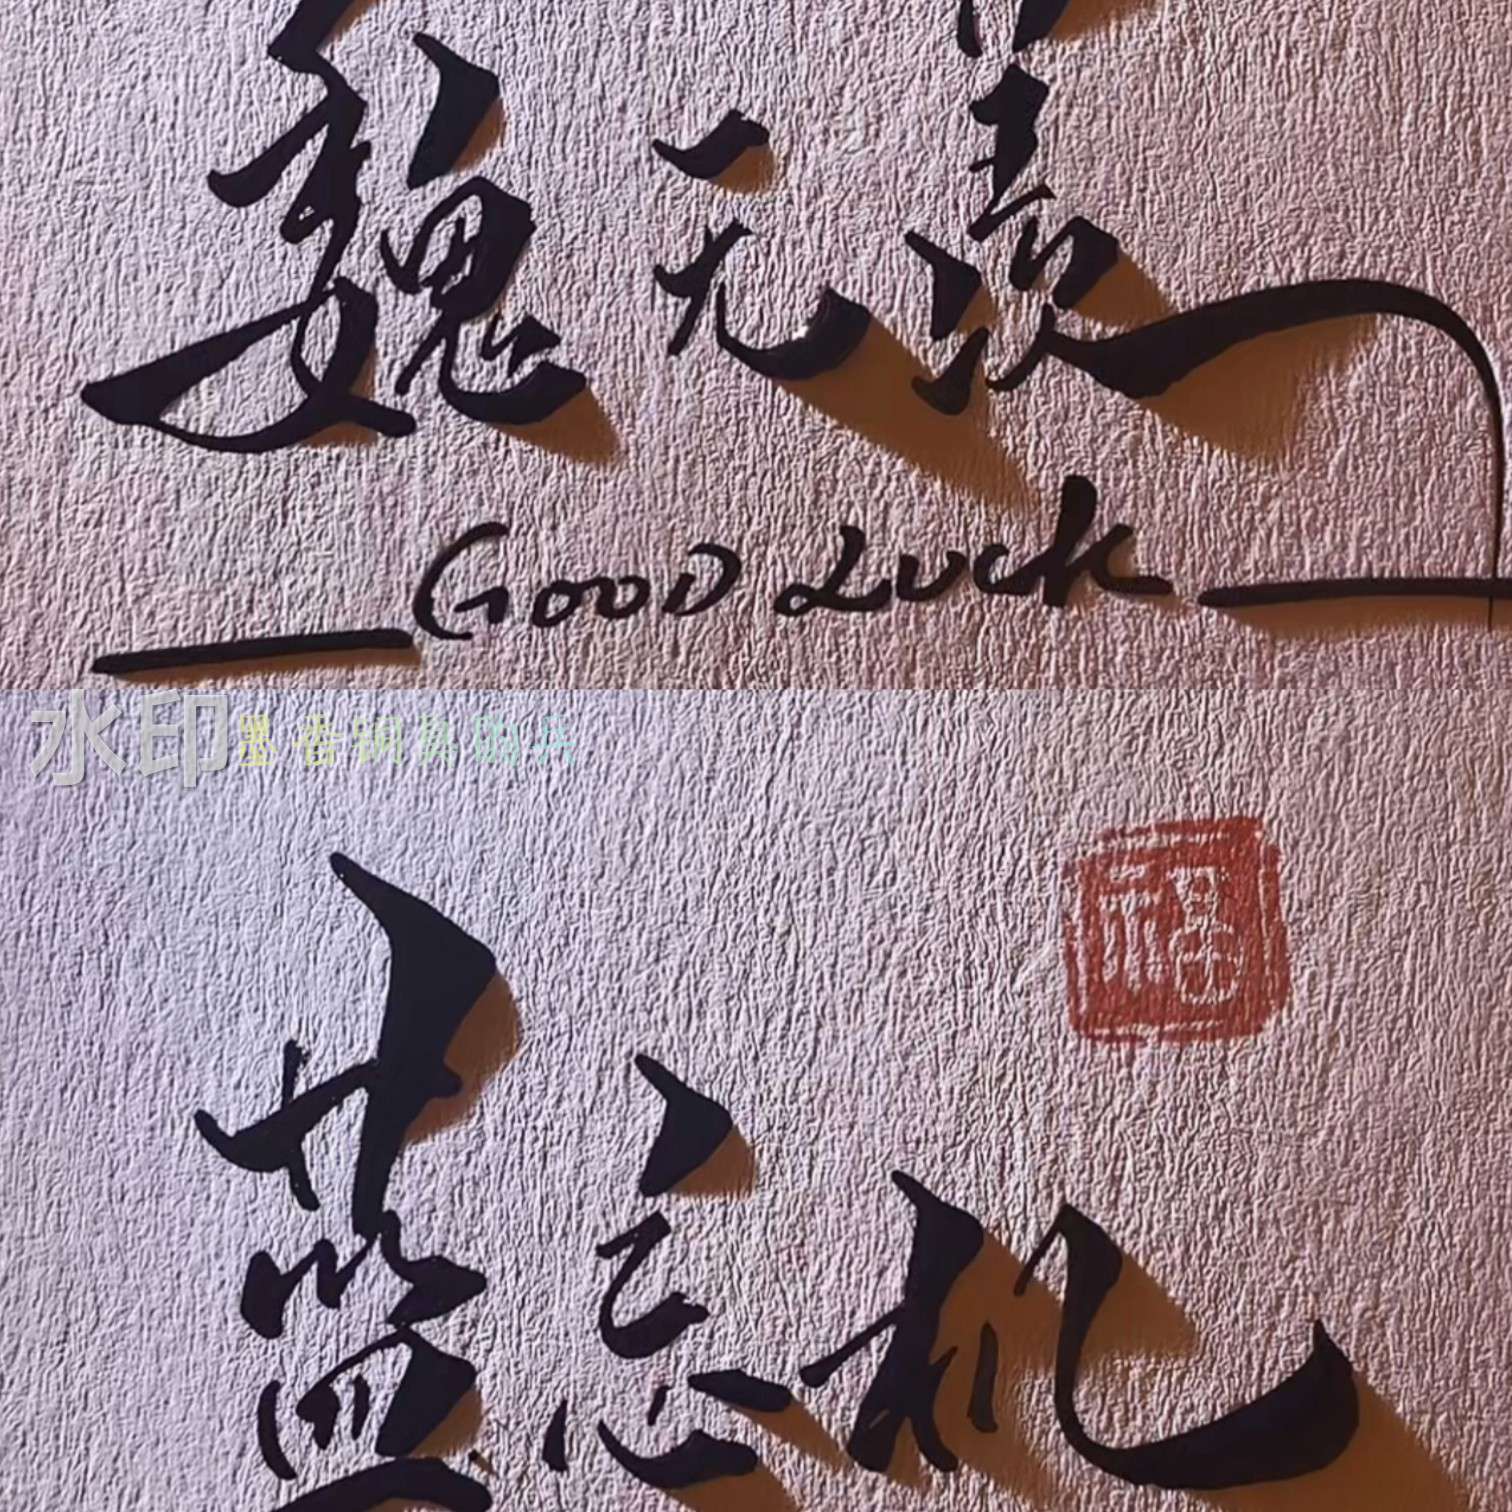 魏无羡
GOOD Luck
水印墨香铜臭的兵
福
蓝忘机